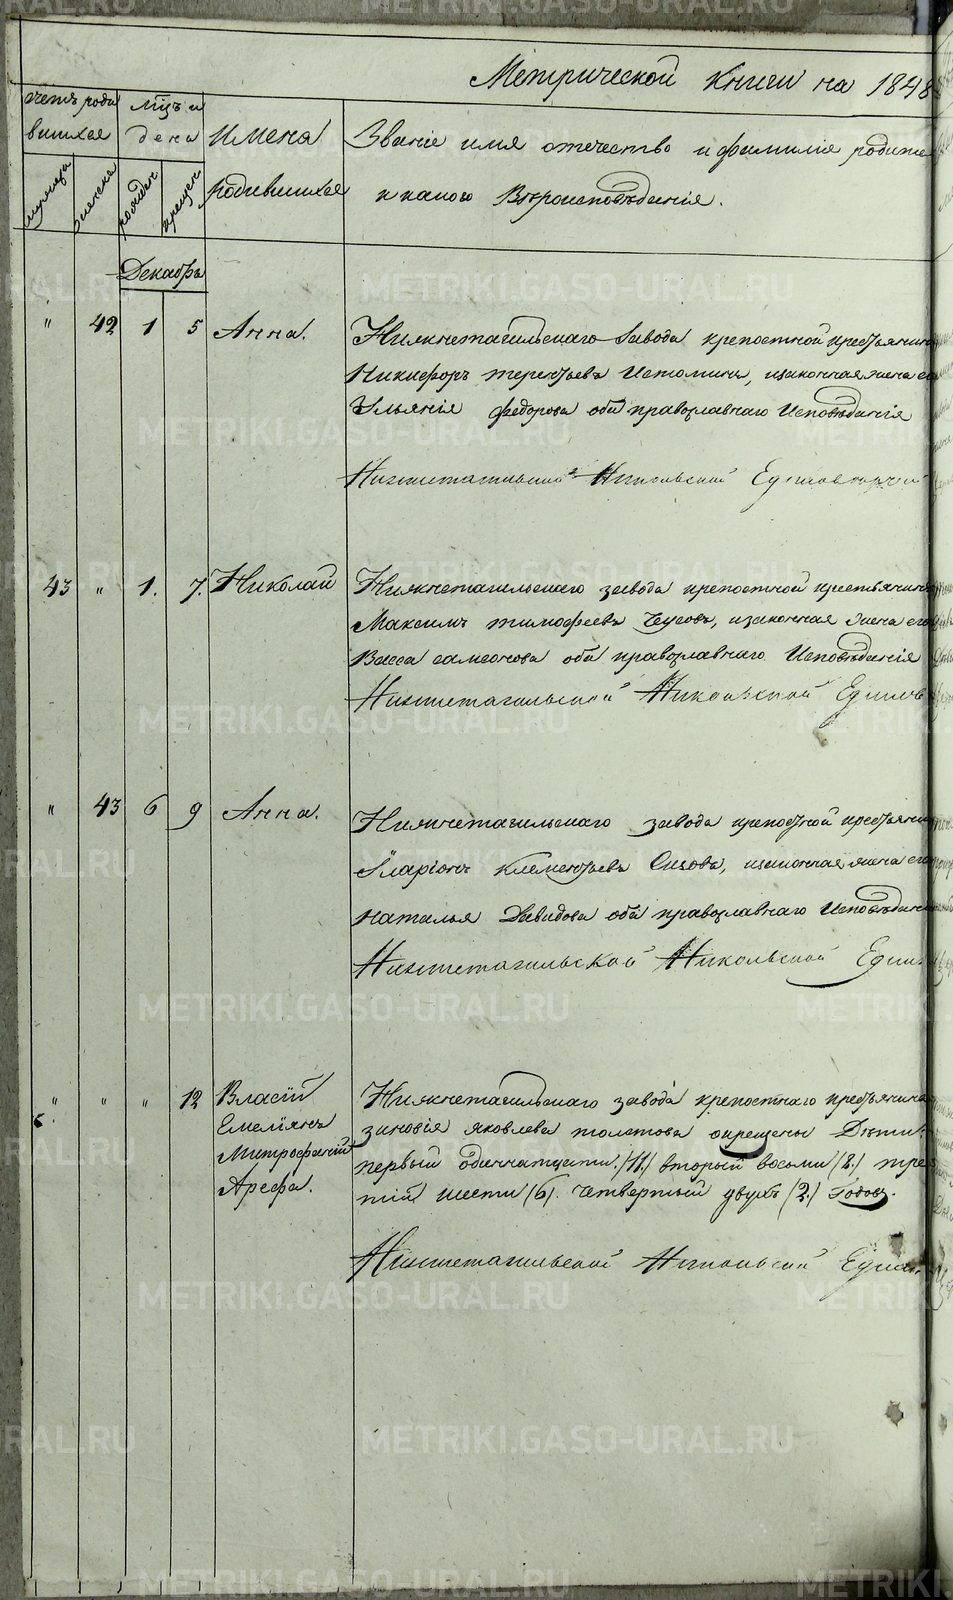 Метрической Книги на 1848
Счетъ роди
вшихся
Мѣсъ и
дена
Имена
родившихся
Званіе имя отечество и фамилія родите
и какого Вѣроисповѣданія.
мужеска
женска
рожден
крещен
Декабрь
" 42 1 5 Анна.
Нижнетагильскаго Завода крепостной крестьянинъ
Никифоръ терентьевъ Истоминъ, изаконная жена ег
Ульянія федорова оба православнаго Исповѣданія
Нижнетагильской Никольской Единоверчес
43 " 1. 7. Николай
Нижнетагильскаго завода крепостной крестьянинъ
Максимъ тимофеевъ Чусовъ, изаконная жена его
Васса самсонова оба православнаго Исповѣданія
Нижнетагильской Никольской Единов
" 43 6 9 Анна.
Нижнетагильскаго завода крепостной крестьянин
Іларіонъ Клементьевъ Сизовъ, изаконная жена его
Наталья Давидова оба православнаго Исповѣдані
Нижнетагильской Никольской Един
" " " 12 Власій
Емеліянъ
Митрофаній
Арефа.
Нижнетагильскаго завода крепостнаго крестьянина
зиновія яковлева толстова окрещены Дѣти:
первый одиннатцати /11./ вторый восьми /8./ тре
тій шести /6/. Четвертый двухъ /2./ Годовъ.
Нижнетагильской Никольской Един
METRIKI.GASO-URAL.RU